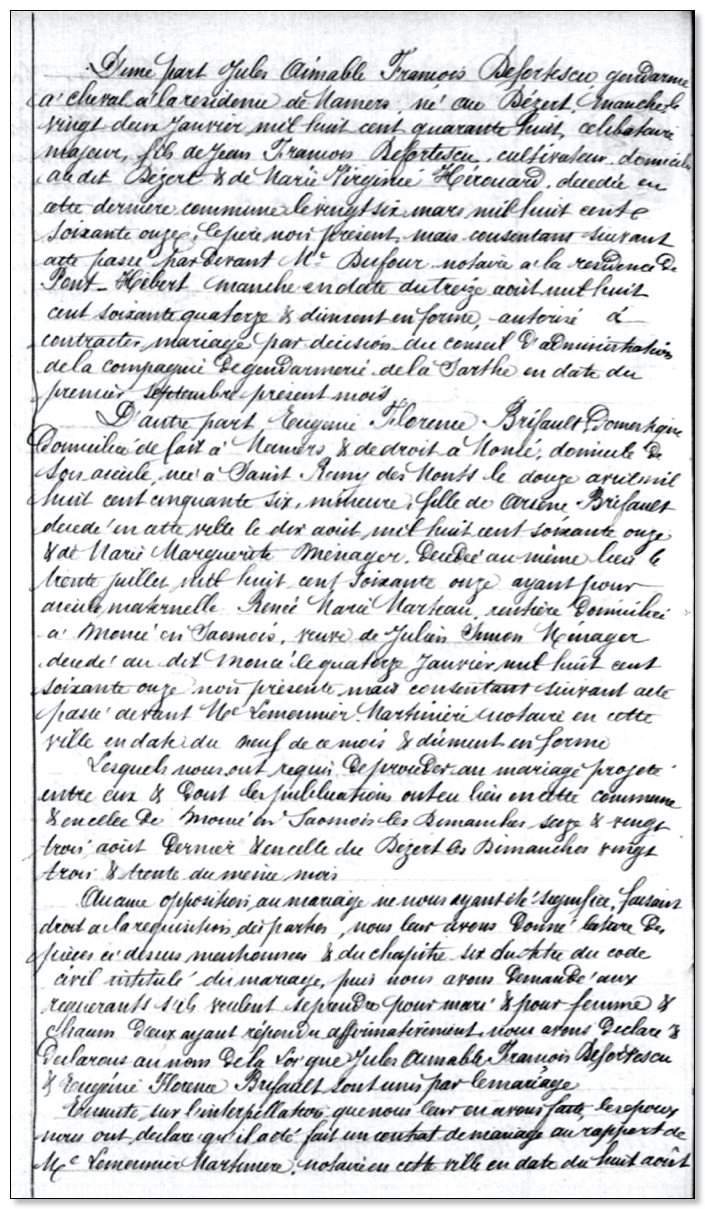 D'une part Jules Aimable François Defortescu gendarme
à cheval à la residence de Mamers né au Dézert, Manche le
vingt deux Janvier, mil huit cent quarante huit, celibataire
majeur, fils de Jean François Defortescu, cultivateur, domicilié
au dit Dézert & de Marie Virginie Hérouard, decedée en
cette dernière commune le vingt six mars mil huit cent
soixante onze, le père non présent, mais consentant suivant
acte passé par devant Me Dufour notaire a la residence de
Pont-Hébert, Manche en date du treize août mil huit
cent soixante quatorze & dûment en forme, autorisé à
contracter mariage par decision du conseil d'administration
de la compagnie de gendarmerie de la Sarthe en date du
premier septembre présent mois,
D'autre part, Eugénie Florence Brifault, Domestique
Domiciliée de fait à Mamers & de droit à Moncé, domicile de
son aieule, née à Saint Remy des Monts le douze avril mil
huit cent cinquante six, mineure, fille de Arsène Brifault
decedé en cette ville le dix août, mil huit cent soixante onze
& de Marie Marguerite Ménager, Decedée au même lieu le
trente juillet mil huit cent soixante onze ayant pour
aieule maternelle Renée Marie Marteau, rentière Domiciliée
à Moncé en Saosnois, veuve de Julien Simon Ménager
decedé au dit Moncé le quatorze Janvier, mil huit cent
soixante onze non présente mais consentant suivant acte
passé devant Me Lemonnier Martinière notaire en cette
ville en date du neuf de ce mois & dûment en forme
Lesquels nous ont requis De procéder au mariage projeté
entre eux & Dont les publications ont eu lieu en cette commune
& en celle de Moncé en Saosnois les Dimanches seize & vingt
trois août Dernier & en celle du Dézert les Dimanches vingt
trois & trente du même mois
Aucune opposition au mariage ne nous ayant été signifiée, faisant
droit a la requisition des parties, nous leur avons Donné lecture Des
pièces ci dessus mentionnées & du chapitre six du titre du code
civil intitulé du mariage, puis nous avons Demandé aux
requerants s'ils veulent se prendre pour mari & pour femme &
chacun D'eux ayant répondu affirmativement, nous avons Declaré &
Declarons au nom De la Loi que Jules Aimable François Defortescu
& Eugénie Florence Brifault sont unis par le mariage
Ensuite, sur l'interpellation que nous leur en avons faite, les epoux
nous ont declaré qu'il a été fait un contrat de mariage au rapport de
Me Lemonnier Martinière, notaire en cette ville en date du huit août